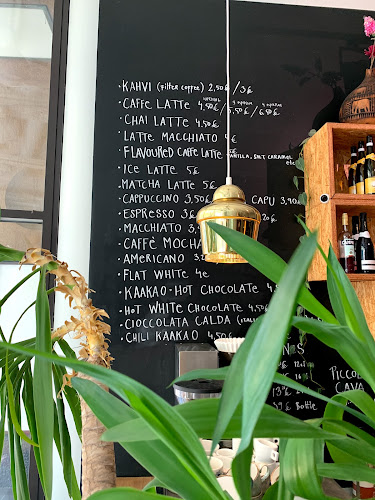 · KAHVI (filter coffee) 2,50€ / 3€
· CAFFE LATTE 4,50€ / 5,50€ / 6,50€
· CHAI LATTE 4,50€
· LATTE MACCHIATO 5€
· FLAVOURED CAFFE LATTE 5€
VANILLA, SALT CARAMEL etc
· ICE LATTE 5€
· MATCHA LATTE 5€
· CAPPUCCINO 3,50€ CAPU 3,90
· ESPRESSO 20€
· MACCHIATO 3
· CAFFÈ MOCHA
· AMERICANO
· FLAT WHITE 4€
· KAAKAO · HOT CHOCOLATE 4.50
· HOT WHITE CHOCOLATE 4.50
· CIOCCOLATA CALDA (ITAL
· CHILI KAAKAO 4,50
PICCOL
CAVA
Bottle